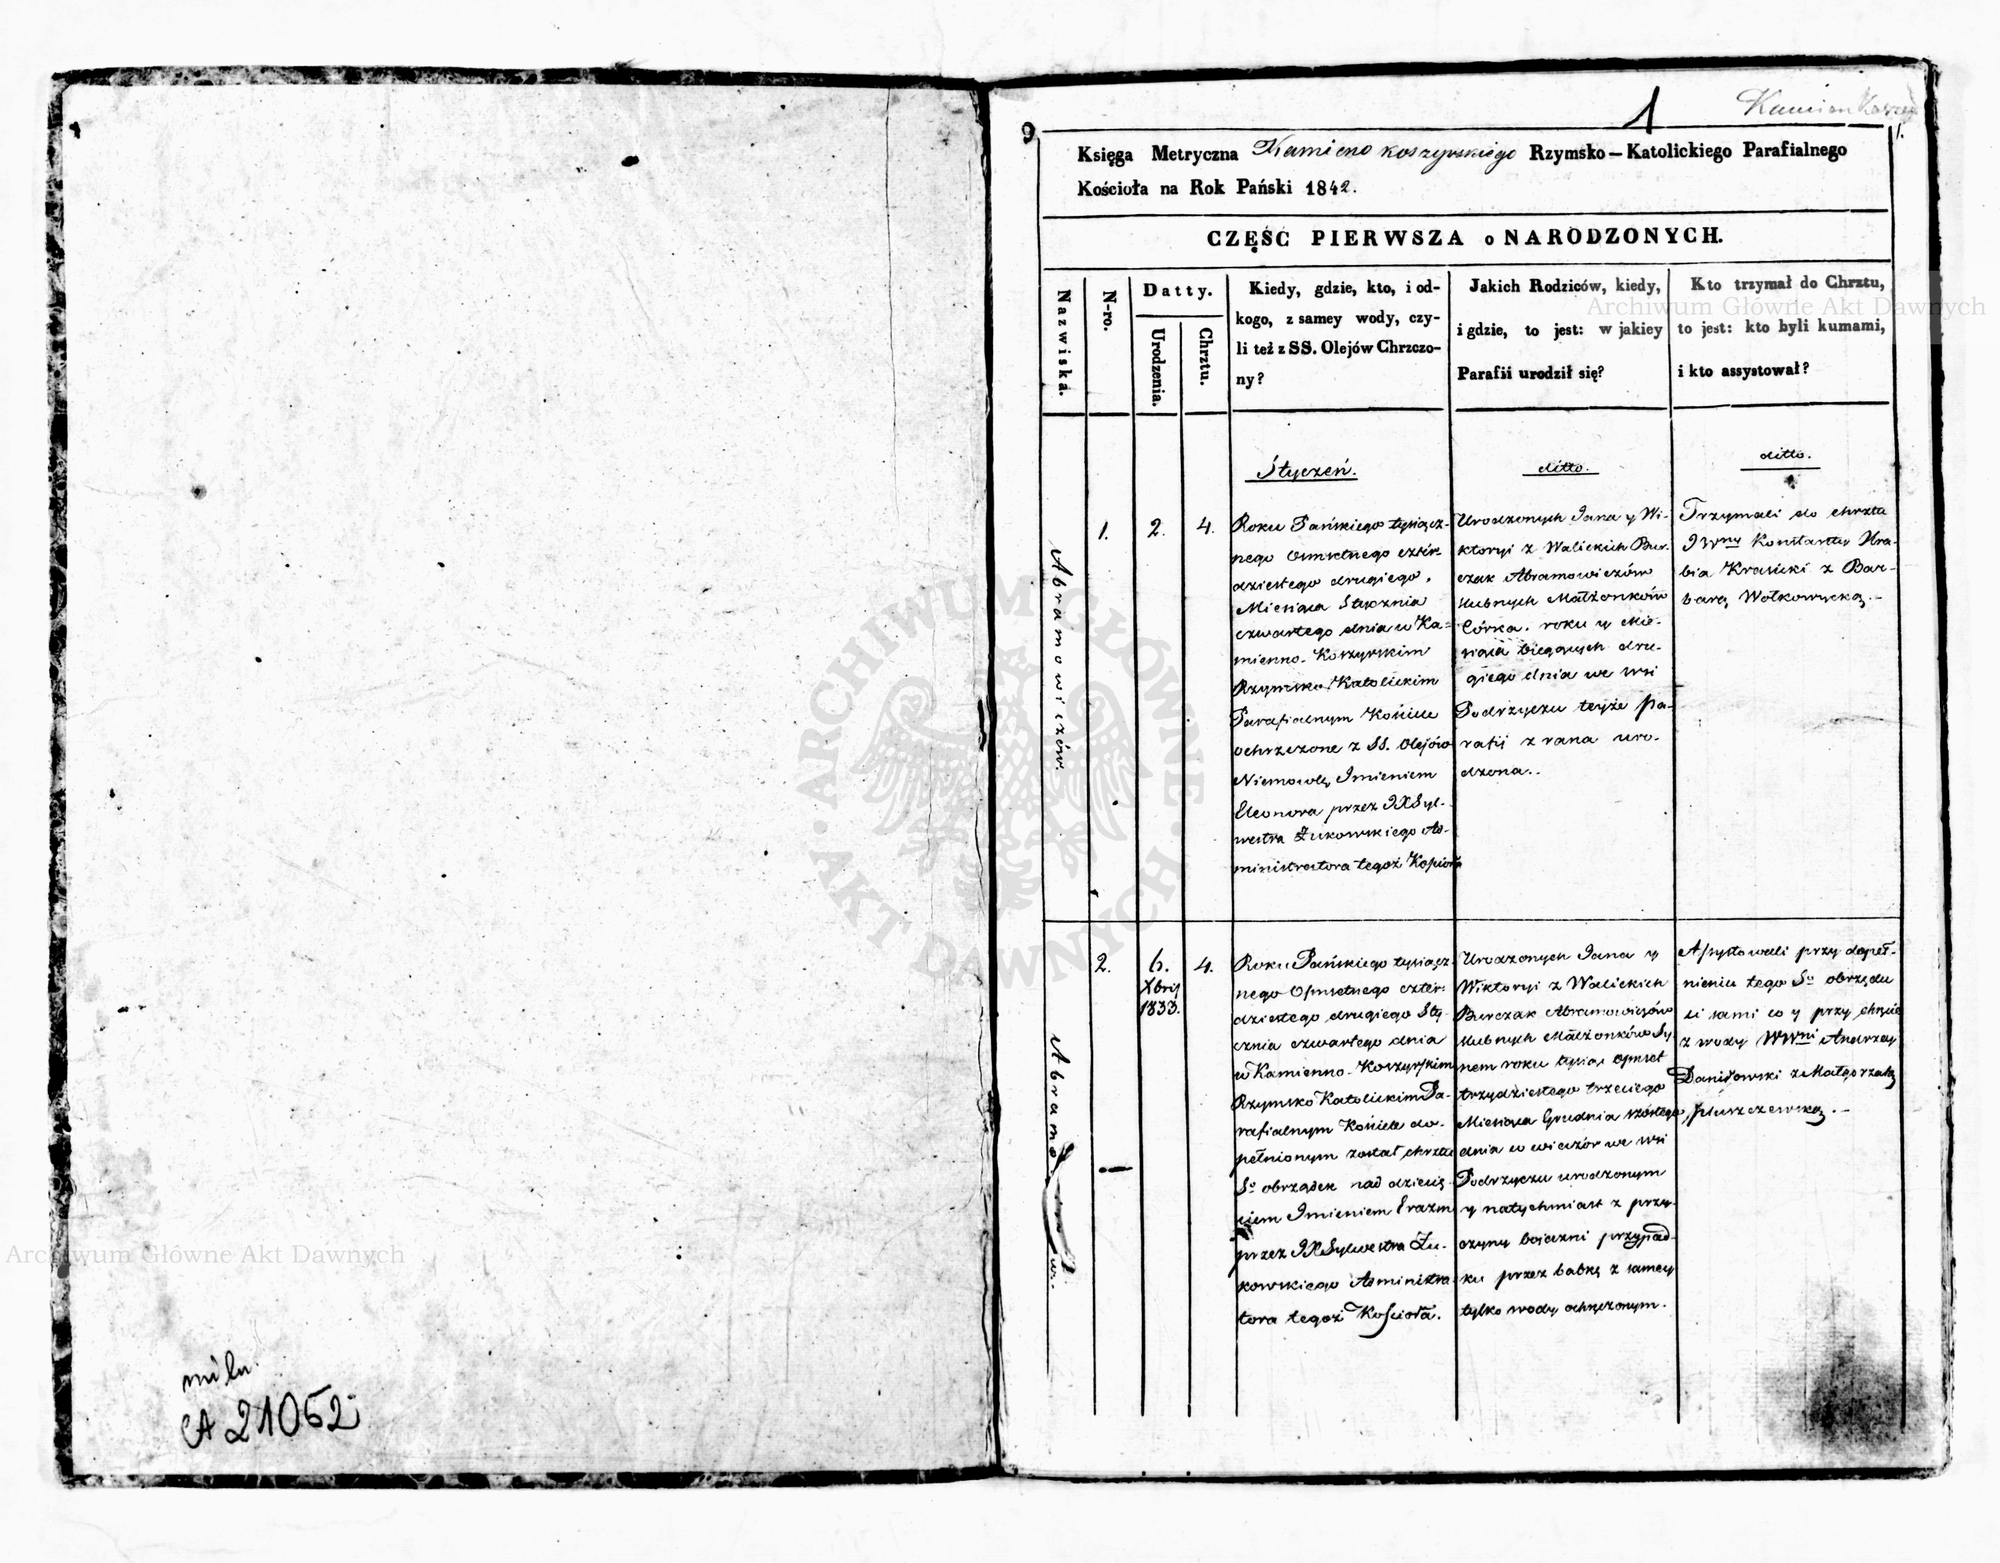 milu.
A 21052
1
Kamien Kaszy
9
1.
Księga Metryczna Kamieno koszyrskiego Rzymsko – Katolickiego Parafialnego
Kościoła na Rok Pański 1842.
CZĘŚĆ PIERWSZA o NARODZONYCH.
Nazwiska.
N-ro.
Datty.
Urodzenia.
Chrztu.
Kiedy, gdzie, kto, i od-
kogo, z samey wody, czy-
li też z SS. Olejów Chrzczo-
ny?
Jakich Rodziców, kiedy,
i gdzie, to jest: w jakiey
Parafii urodził się?
Kto trzymał do Chrztu,
to jest: kto byli kumami,
i kto assystował?
Abramowiczów.
1.
2.
4.
Styczeń.
Roku Pańskiego tysiącz-
nego Osmsetnego czter
dziestego drugiego.
Miesiąca Stycznia
czwartego dnia w Ka-
mienno-Koszyrskim
Rzymsko Katolickim
Parafialnym Kościele
ochrzczone z SS. Olejów
Niemowlę Imieniem
Eleonora przez JX Syl-
westra Żukowskiego Ad-
ministratora tegoż Kościoła
ditto.
Urodzonych Jana y Wi-
ktoryi z Walickich Bur-
czak Abramowiczów
slubnych Małżonków
Córka. roku y Mie-
siąca bieżących dru-
giego dnia we wsi
Podrzyczu teyże pa-
rafii z rana uro-
dzona..
ditto.
Trzymali do chrztu
JWny Konstanty Hra-
bia Krasicki z Bar-
barą Wołkowycką.-
2.
6.
Xbris
1833.
4.
Roku Pańskiego tysiącz-
nego Osmsetnego czter-
dziestego drugiego Sty-
cznia czwartego dnia
w Kamienno-Koszyrskim
Rzymsko Katolickim Pa-
rafialnym Kościele do-
pełnionym został chrztu
So obrządek nad dziecię-
ciem Imieniem Erazm
przez JX Sylwestra Żu-
kowskiego Administra-
tora tegoż Kościoła.
Urodzonych Jana y
Wiktoryi z Walickich
Burczak Abramowiczów
slubnych Małżonków Sy-
nem roku tysiąc osmset
trzydziestego trzeciego
Miesiąca Grudnia szóstego
dnia w wieczór we wsi
Podrzyczu urodzonym
y natychmiast z przy-
czyny boiaźni przypad-
ku przez babkę z samey
tylko wody ochrzczonym.
Assystowali przy dopeł-
nieniu tego So obrzędu
ci sami co y przy chrzcie
z wody WWni Andrzey
Daniłowski z Małgorzatą
Pluszczewską.-
Archiwum Główne Akt Dawnych
Archiwum Główne Akt Dawnych
ARCHIWUM GŁÓWNE AKT DAWNYCH